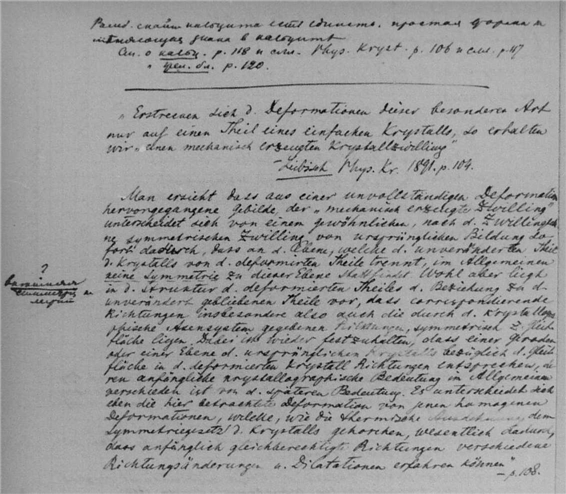 простая форма и
в кальцит
См. о кальц. p. 118 и след. Phys. Kryst. p. 106 и след. p. 117
p. 120.
„Erstrecken sich d. Deformationen dieser besonderen Art
nur auf einen Theil eines einfachen Krystalls, so erhalten
wir einen mechanisch erzeugten Krystallzwilling"
Liebisch Phys. Kr. 1891. p. 104.
Man ersieht dass aus einer unvollständigen Deformation
hervorgegangene Gebilde, der „mechanisch erzeugte Zwilling"
unterscheidet sich von einem gewöhnlichen, nach d. Zwillings
symmetrischen Zwilling von ursprünglicher Bildung so
fort dadurch, dass an d. Ebene, welche d. unveränderten Theil
d. Krystalls von d. deformierten Theile trennt, im Allgemeinen
keine Symmetrie zu dieser Ebene stattfindet. Wohl aber liegt
in d. Struktur d. deformierten Theiles d. Beziehung zu d.
unverändert gebliebenen Theile vor, dass correspondierende
Richtungen insbesondere also auch die durch d. krystallogra
phische Axensystem gegebenen Richtungen, symmetrisch z. Gleit
fläche liegen. Dabei ist wieder festzuhalten, dass einer Geraden
oder einer Ebene d. ursprünglichen Krystalls bezüglich d. Gleit
fläche in d. deformierten Krystall Richtungen entsprechen, de
ren anfängliche krystallographische Bedeutung im Allgemeinen
verschieden ist von d. späteren Bedeutung. Es unterscheidet sich
den die hier betrachtete Deformation von jenen homogenen
Deformationen, welche, wie die thermische Ausdehnung, dem
Symmetriegesetz d. Krystalls gehorchen, wesentlich dadurch,
dass anfänglich gleichberechtigte Richtungen verschiedene
Richtungsänderungen u. Dilatationen erfahren können"
– p. 108.
?